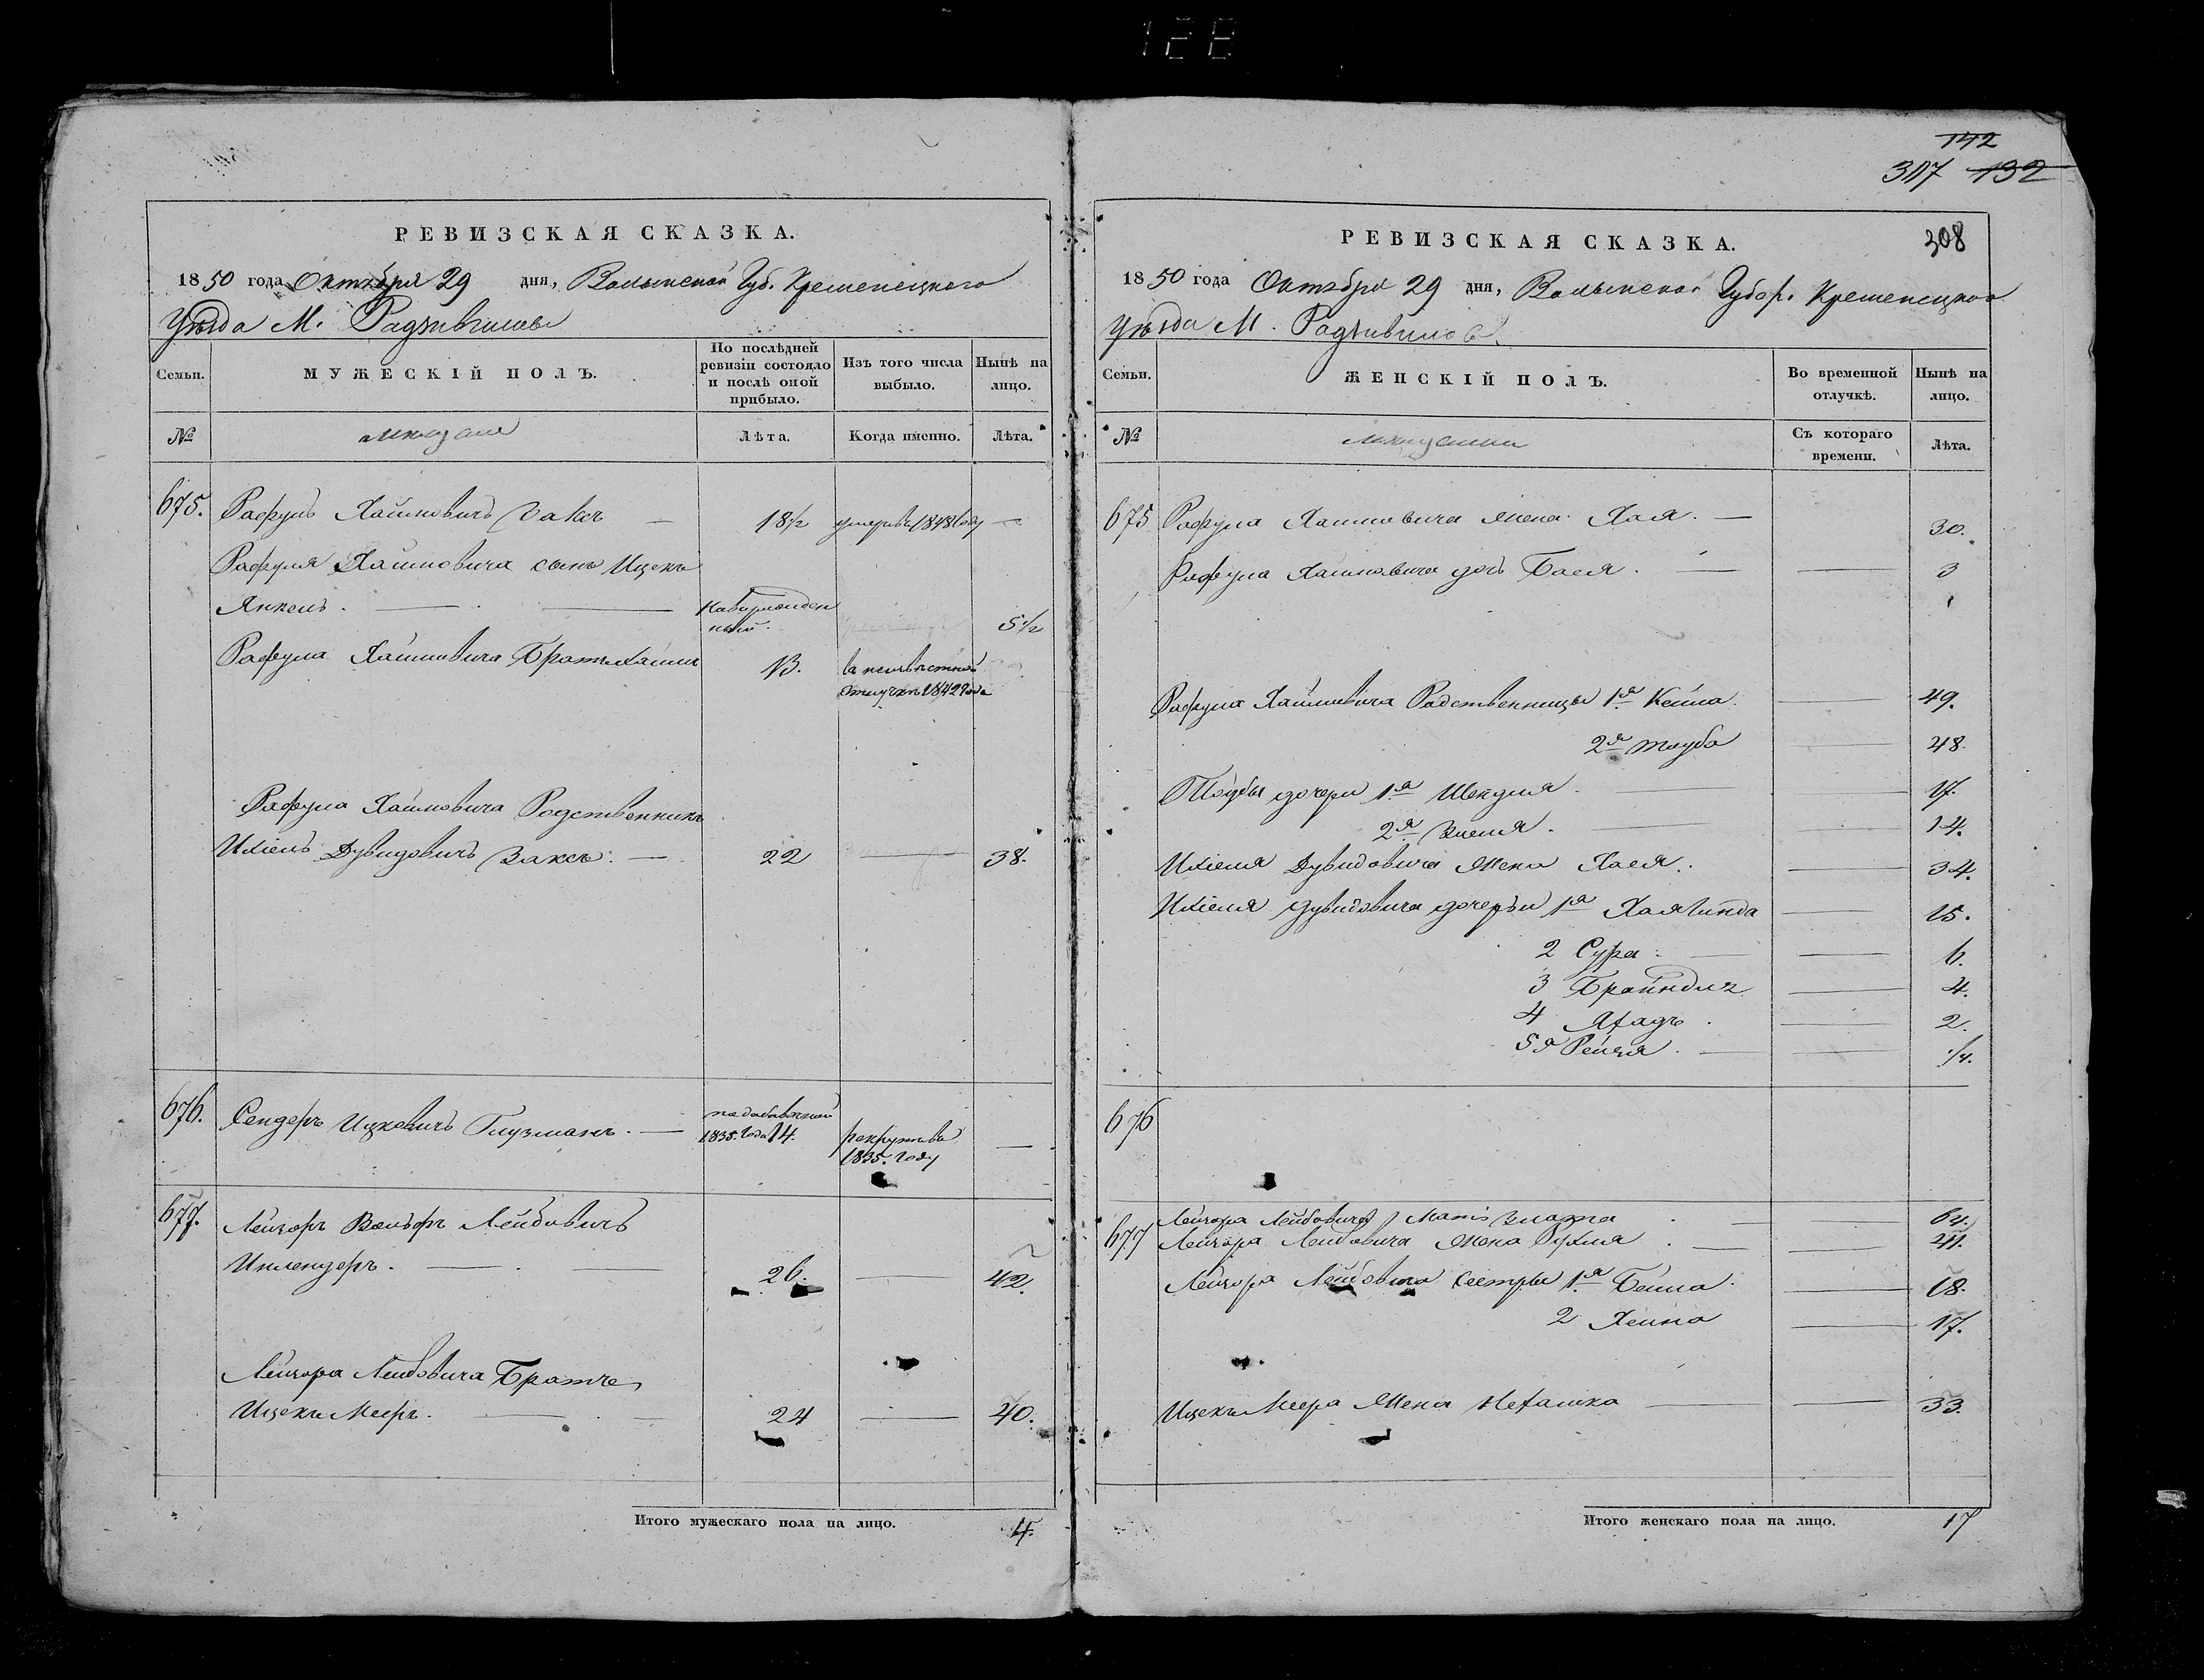 128
142
307 132
РЕВИЗСКАЯ СКАЗКА.
1850 года Октября 29 дня, Волынской Губ. Кременецкого
Уѣзда М. Радзивилова
Семьи.
МУЖЕСКІЙ ПОЛЪ.
По послѣдней ревизіи состояло и послѣ оной прибыло.
Изъ того числа выбыло.
Нынѣ на лицо.
№
мещане
Лѣта.
Когда именно.
Лѣта.
675. Рафулъ Хаймовичъ Закъ — 18½ умеръ въ 1848 году —
Рафуля Хаймовича сынъ Ицекъ
Янкель. — Новорожденный. 5½
Рафула Хаймовича Братъ Хаимъ 13. в неизвестной
отлучкѣ 1842 года
Рафула Хаймовича Родственникъ
Ихіель Дувидовичъ Заксъ. — 22 — 38.
676. Сендеръ Ицковичъ Глузманъ. — 1835. года 14. рекрутъ въ —
1835. году
677. Лейзоръ Вольфъ Лейбовичъ
26. — 42.
Лейзора Лейбовича Братъ
Ицекъ Мееръ. — 24 — 40.
Итого мужескаго пола на лицо. 4.
308
РЕВИЗСКАЯ СКАЗКА.
1850 года Октября 29 дня, Волынской Губер. Кременецкого
Уѣзда М. Радзивилова
Семьи.
ЖЕНСКІЙ ПОЛЪ.
Во временной отлучкѣ.
Нынѣ на лицо.
№
мещанки
Съ котораго времени.
Лѣта.
675 Рафула Хаимовича Жена Хая. — 30.
Рафула Хаимовича дочь Бася. — 3
Рафула Хаймовича Родственницы 1я Кейла. 49.
2я Тауба 48.
Таубы дочери 1я Шендля. 17.
2я Злеля. 14.
Ихіеля Дувидовича Жена Хася. 34.
Ихіеля Дувидовича дочери 1я Хая Гинда 15.
2 Сура. 6.
3 Брайндля 4.
4 2.
5я Рейзя. ¼.
676
677 Лейзора Лейбовича Злата 64.
Лейзора Лейбовича Жена Рухля. 41.
Лейзора Лейбовича Сестры 1я Бейла. 18.
2 Хейна 17.
Ицекъ Меера Жена Нехамка 33.
Итого женскаго пола на лицо. 17